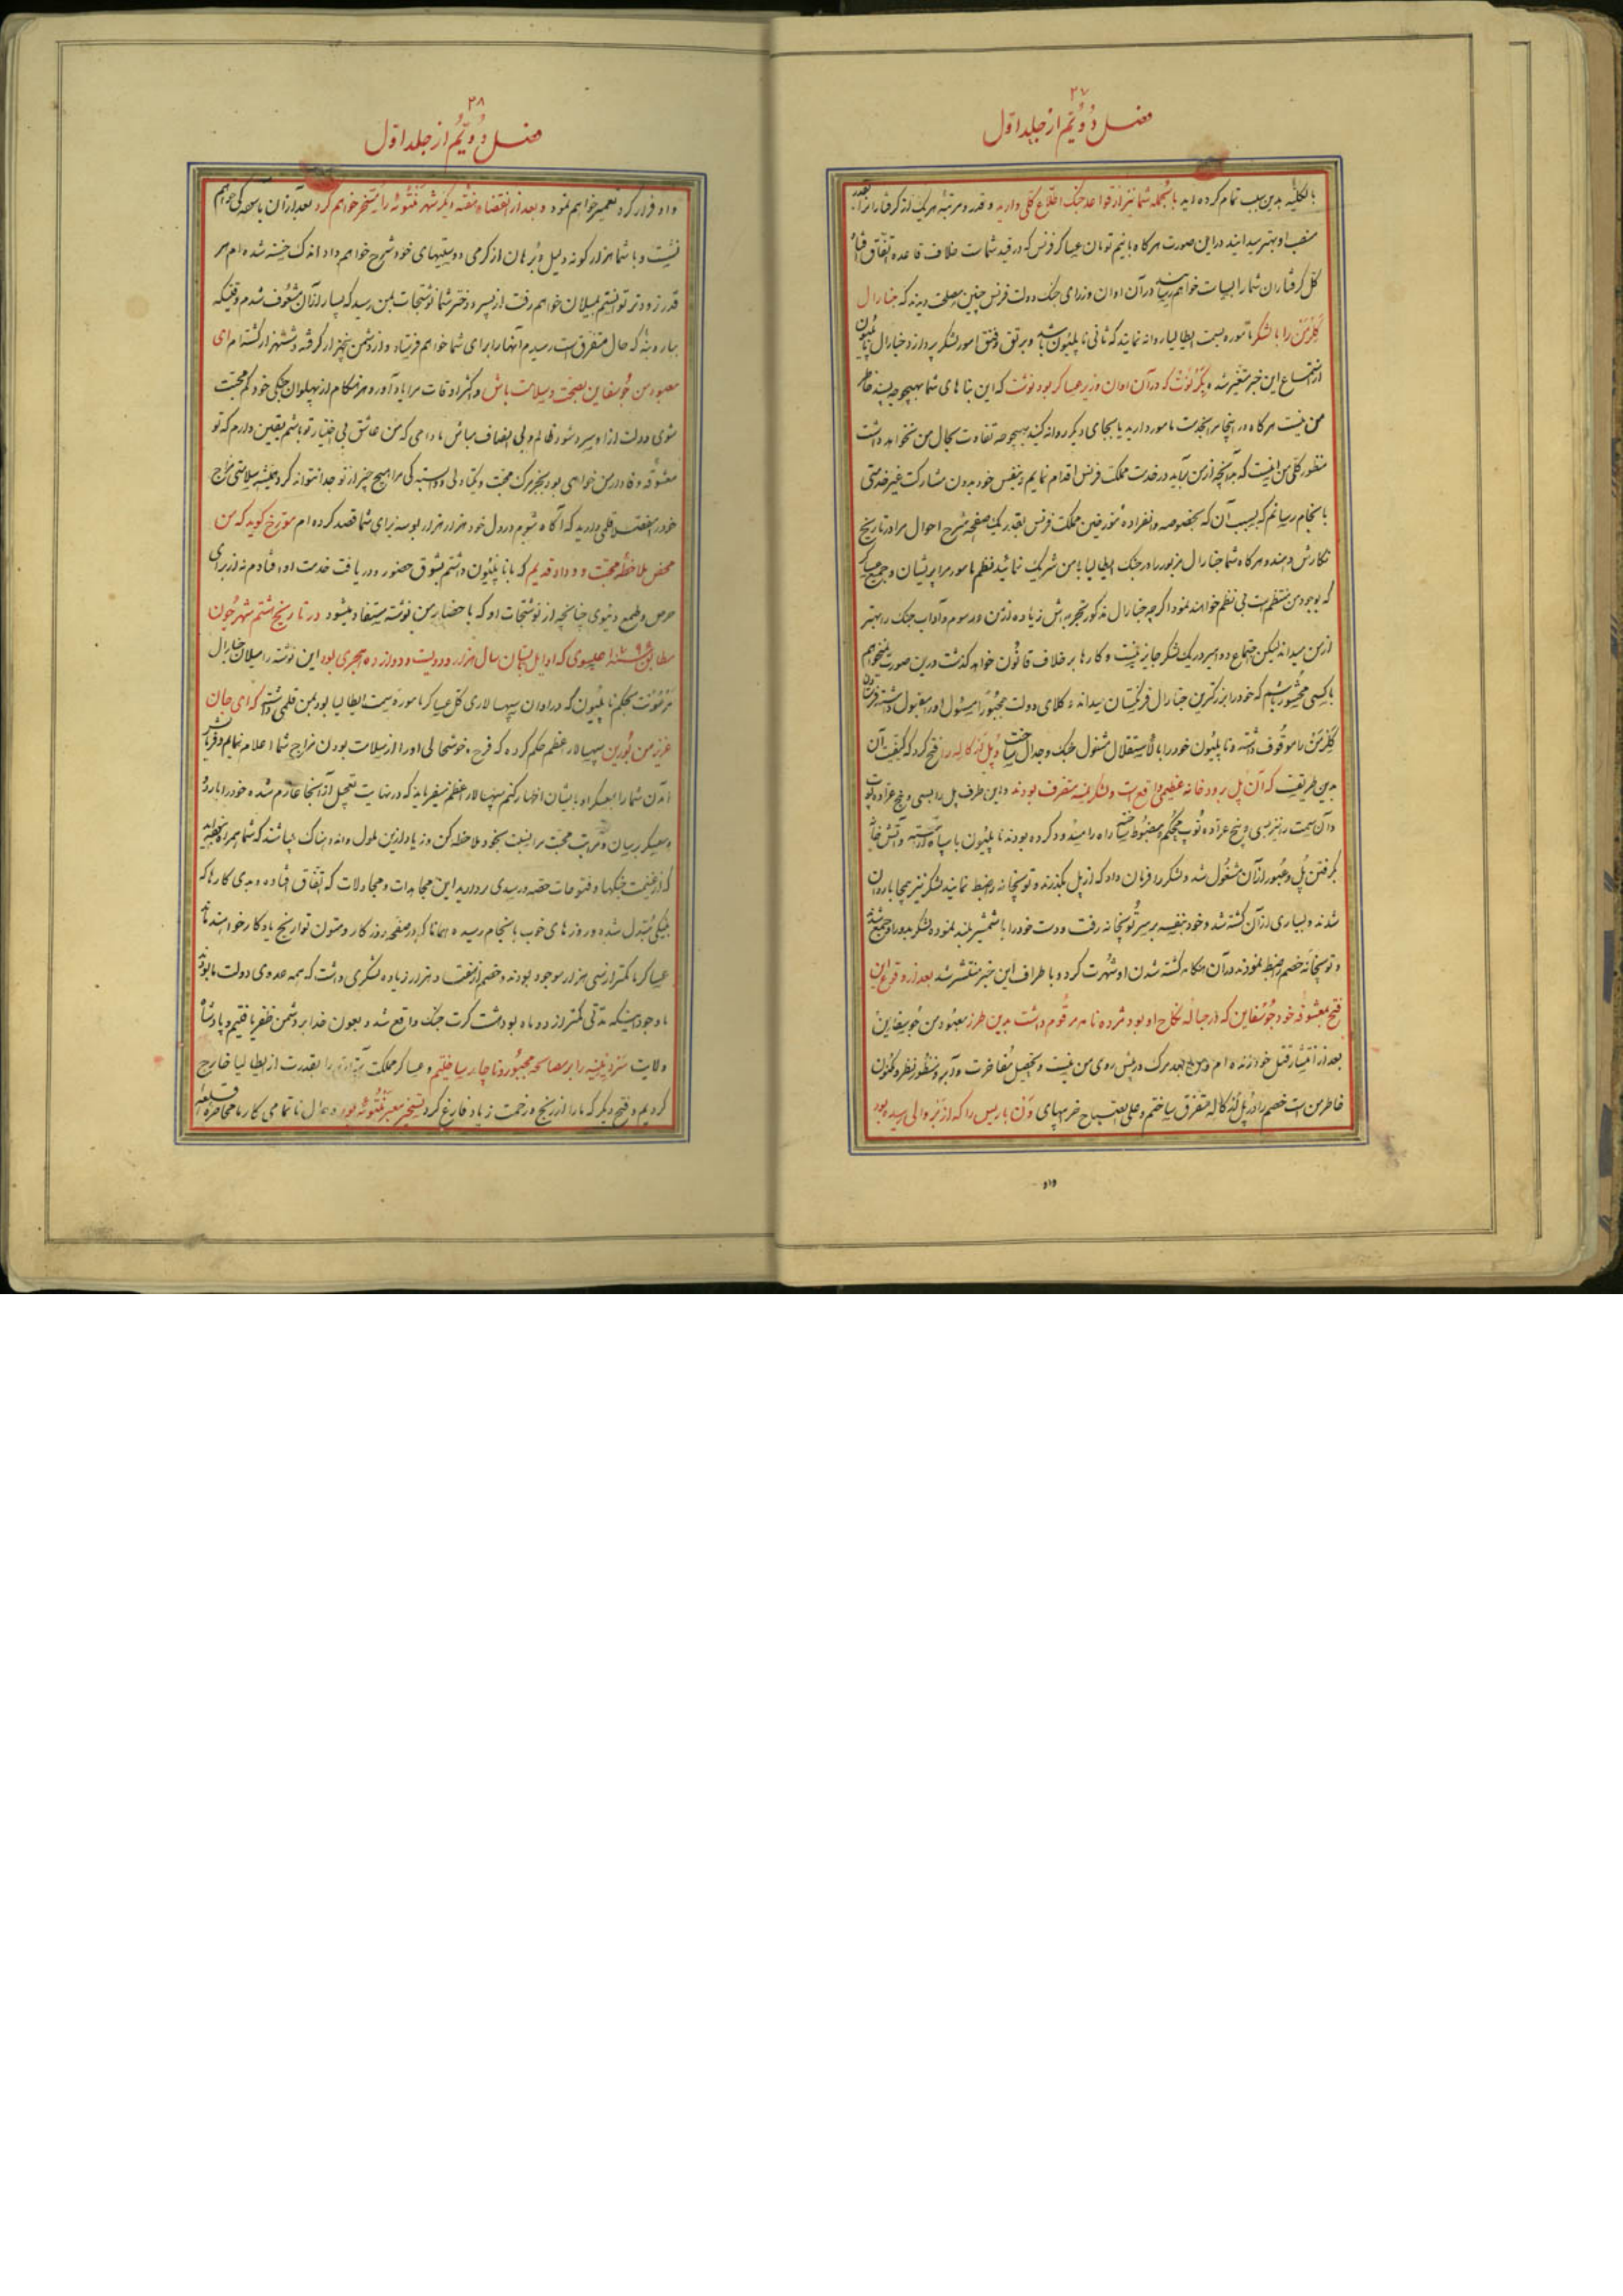 ۲۷
فصل دُوّیُم از جلد اوّل
بالکلیه بدین سبب تمام کرده اید باالجمله شما نیز از قواعد جنک اطلاع کلی دارید و قدر و مرتبه هر یک از کرفتاران را بقدر
منصب او بهتر میدانید در این صورت هرکاه بدانیم تومان عساکر فرنس که در قید شماست خلاف قاعده اتفاق افتاد
کل کرفتاران شمارا بسیاست خواهم رسانید در آن اوان وزرای جنک دولت فرنس چنین مصلحت دیدند که جنارال
کلرمن را با لشکر مأموره بسمت ایطالیا روانه نمایند که ثانی ناپلیون باشد و برتق و فتق امور لشکر پردازد جنارال ناپلیون
از استماع این خبر متغیر شد و بکرنوت که در آن اوان وزیر عساکر بود نوشت که این بناهای شما بهیچوجه پسند خاطر
من نیست هرکاه در اینجا مرا بخدمت مأمور دارید یا بجای دیکر روانه کنید بهیچوجه تفاوت بحال من نخواهد داشت
منظور کلی من اینست که هرآنچه از من برآید در خدمت مملکت فرنس اقدام نمایم و بنفس خود بدون مشارکت غیر خدمتی
بانجام رسانم که بسبب آن که بخصوصه و انفراده مورخین مملکت فرنس بقدر یک صفحه شرح احوال مرا در تاریخ
نکارش دهند و هرکاه شما جنارال مزبور را در جنک ایطالیا با من شریک نمائید نظم امور مرا پریشان و جمیع عساکر
که بوجود من منتظم است بی نظم خواهند نمود اکرچه جنارال مذکور تجربه اش زیاده از من و رسوم و آداب جنک را بهتر
از من میداند لیکن اجتماع دو امیر در یک لشکر جایز نیست و کارها بر خلاف قانون خواهد کذشت درین صورت نمیخواهم
با کسی محشور باشم که خود را بزرکترین جنارال فرنکستان میداند وکلای دولت مجبورا مسئول اورا مقبول داشته فرستادن
کلرمن را موقوف داشته و ناپلیون خود را بالاستقلال مشغول جنک و جدال ساخت و پل لدکاله را فتح کرد که کیفیت آن
بدین طریقست که آن پل برود خانه عظیمی واقع است و لشکر نمسه متصرف بودند و این طرف پل را بسی و پنج عراده توپ
و آن سمت را نیز بسی و پنج عراده توپ محکم و مضبوط ساخته راه را مسدود کرده بودند ناپلیون با سپاه آراسته و آتش خانه
بکرفتن پل و عبور از آن مشغول شد و لشکر را فرمان داد که از پل بکذرند و توپخانه را ضبط نمایند لشکر نیز بیجابا روان
شدند و بسیاری از آن کشته شد و خود بنفسه بر سر توپخانه رفت و دست خود را با شمشیر بلند نموده لشکر بدور او جمع شدند
و توپخانه خصم را ضبط نمودند در آن هنکامه کشته شدن او شهرت کرد و باطراف این خبر منتشر شد بعد از وقوع این
فتح بمعشوقه خود جوسفاین که در حباله نکاح او بود مژده نامه مرقوم داشت بدین طرز معبوده من جوسفاین
بعد از انتشار قتل خود زنده ام و من بعد مرک در پیش روی من نیست و تحصیل مفاخرت و آبرو منظور نظر و مکنون
خاطر من است خصم را در پل لدکاله متفرق ساختم و علی الصباح خرمهای دن باریس را که از نزد والی رسیده بود
داو
۲۸
فصل دُوّیُم از جلد اوّل
داو فرار کرد تعمیر خواهم نمود و بعد از انقضاء هفته دیکر شهر منتوئه را مسخر خواهم کرد بعد از آن باسعد کی خواهم
نشست و با شما هزار کونه دلیل و برهان از کرمی دوستیهای خود شرح خواهم داد اندک خسته شده ام هر
قدر زودتر توانستم بمیلان خواهم رفت از پسر و دختر شما نوشتجات بمن رسید که بسیار از آن مشعوف شدم وقتیکه
بار و بنه که حال متفرق است رسیدم آنهارا برای شما خواهم فرستاد و از دشمن پنجهزار کرفته و ششهزار کشته ام ای
معبود من جوسفاین بصحت و سلامت باش و اکثر اوقات مرا یاد آور و هنکام از پهلوان جنکی خود کم محبت
شوی دولت ازا و میرد شود ظالم و بی انصاف مباش مادامی که من عاشق بی اختیار تو باشم یقین دارم که تو
معشوقه وفادار من خواهی بود بجز مرک محبت و یکتا دلی و دلبستکی مرا هیچ چیز از تو جدا نتواند کرد همیشه سلامتی مزاج
خود را بقلمی دارید که آکاه شوم در دل خود هزار هزار بوسه برای شما قصد کرده ام مورخ کوید که من
محض ملاحظه محبت و وداد قدیم که با ناپلیون داشتم بشوق حضور و دریافت خدمت او افتادم نه از برای
حرص و طمع دنیوی چنانچه از نوشتجات او که باحضار من نوشته مستفاد میشود در تاریخ هشتم شهر جون
مطابق سنه ۱۷۹۶ عیسوی که اوایل سال هزار و دویست و دوازده هجری بود این نوشته را میلان جنارال
مرمونت بحکم ناپلیون که در اوان سپهسالاری کل عساکر مأموره بسمت ایطالیا بود بمن قلمی داشته که ای جان
عزیز من بورین سپهسالار اعظم حکم کرده که فرح و خوشحالی اورا از سلامت بودن مزاج شما اعلام نمایم و فرمایش
آمدن شمارا بعسکر او بایشان اظهار کنم سپهسالار اعظم میفرماید که در نهایت تعجیل از آنجا عازم شده خود را باردو
و معسکر رسان و مراتب محبت مرا نسبت بخود ملاحظه کن و زیاد از این ملول و اندوهناک مباشند که شما همراه نبودید
که از غنیمت جنکها و فتوحات حصه و رسدی بردارید این مجاهدات و مجادلات که اتفاق افتاده و بدی کارها که
بنیکی مبدل شده و روزهای خوب بانجام رسیده همانا که در صفحه روزکار و متون تواریخ یادکار خواهند ماند
عساکر ما کمتر از سی هزار موجود بودند و خصم از هفتاد هزار زیاده لشکری داشت که همه عدوی دولت ما بودند
با وجود اینکه مدتی کمتر از دو ماه بود هشت کرت جنک واقع شد و بعون خدا بر دشمن ظفر یافتیم و پادشاه
ولایت سردینیه را بر مصالحه مجبور و ناچار ساختیم و عساکر مملکت را بقدرت از ایطالیا خارج
کردیم و فتح دیکر که مارا از رنج و زحمت زیاد فارغ کرد تسخیر معبر منتوئه بود و حال ناتمامی کار ما محاصره قلعه